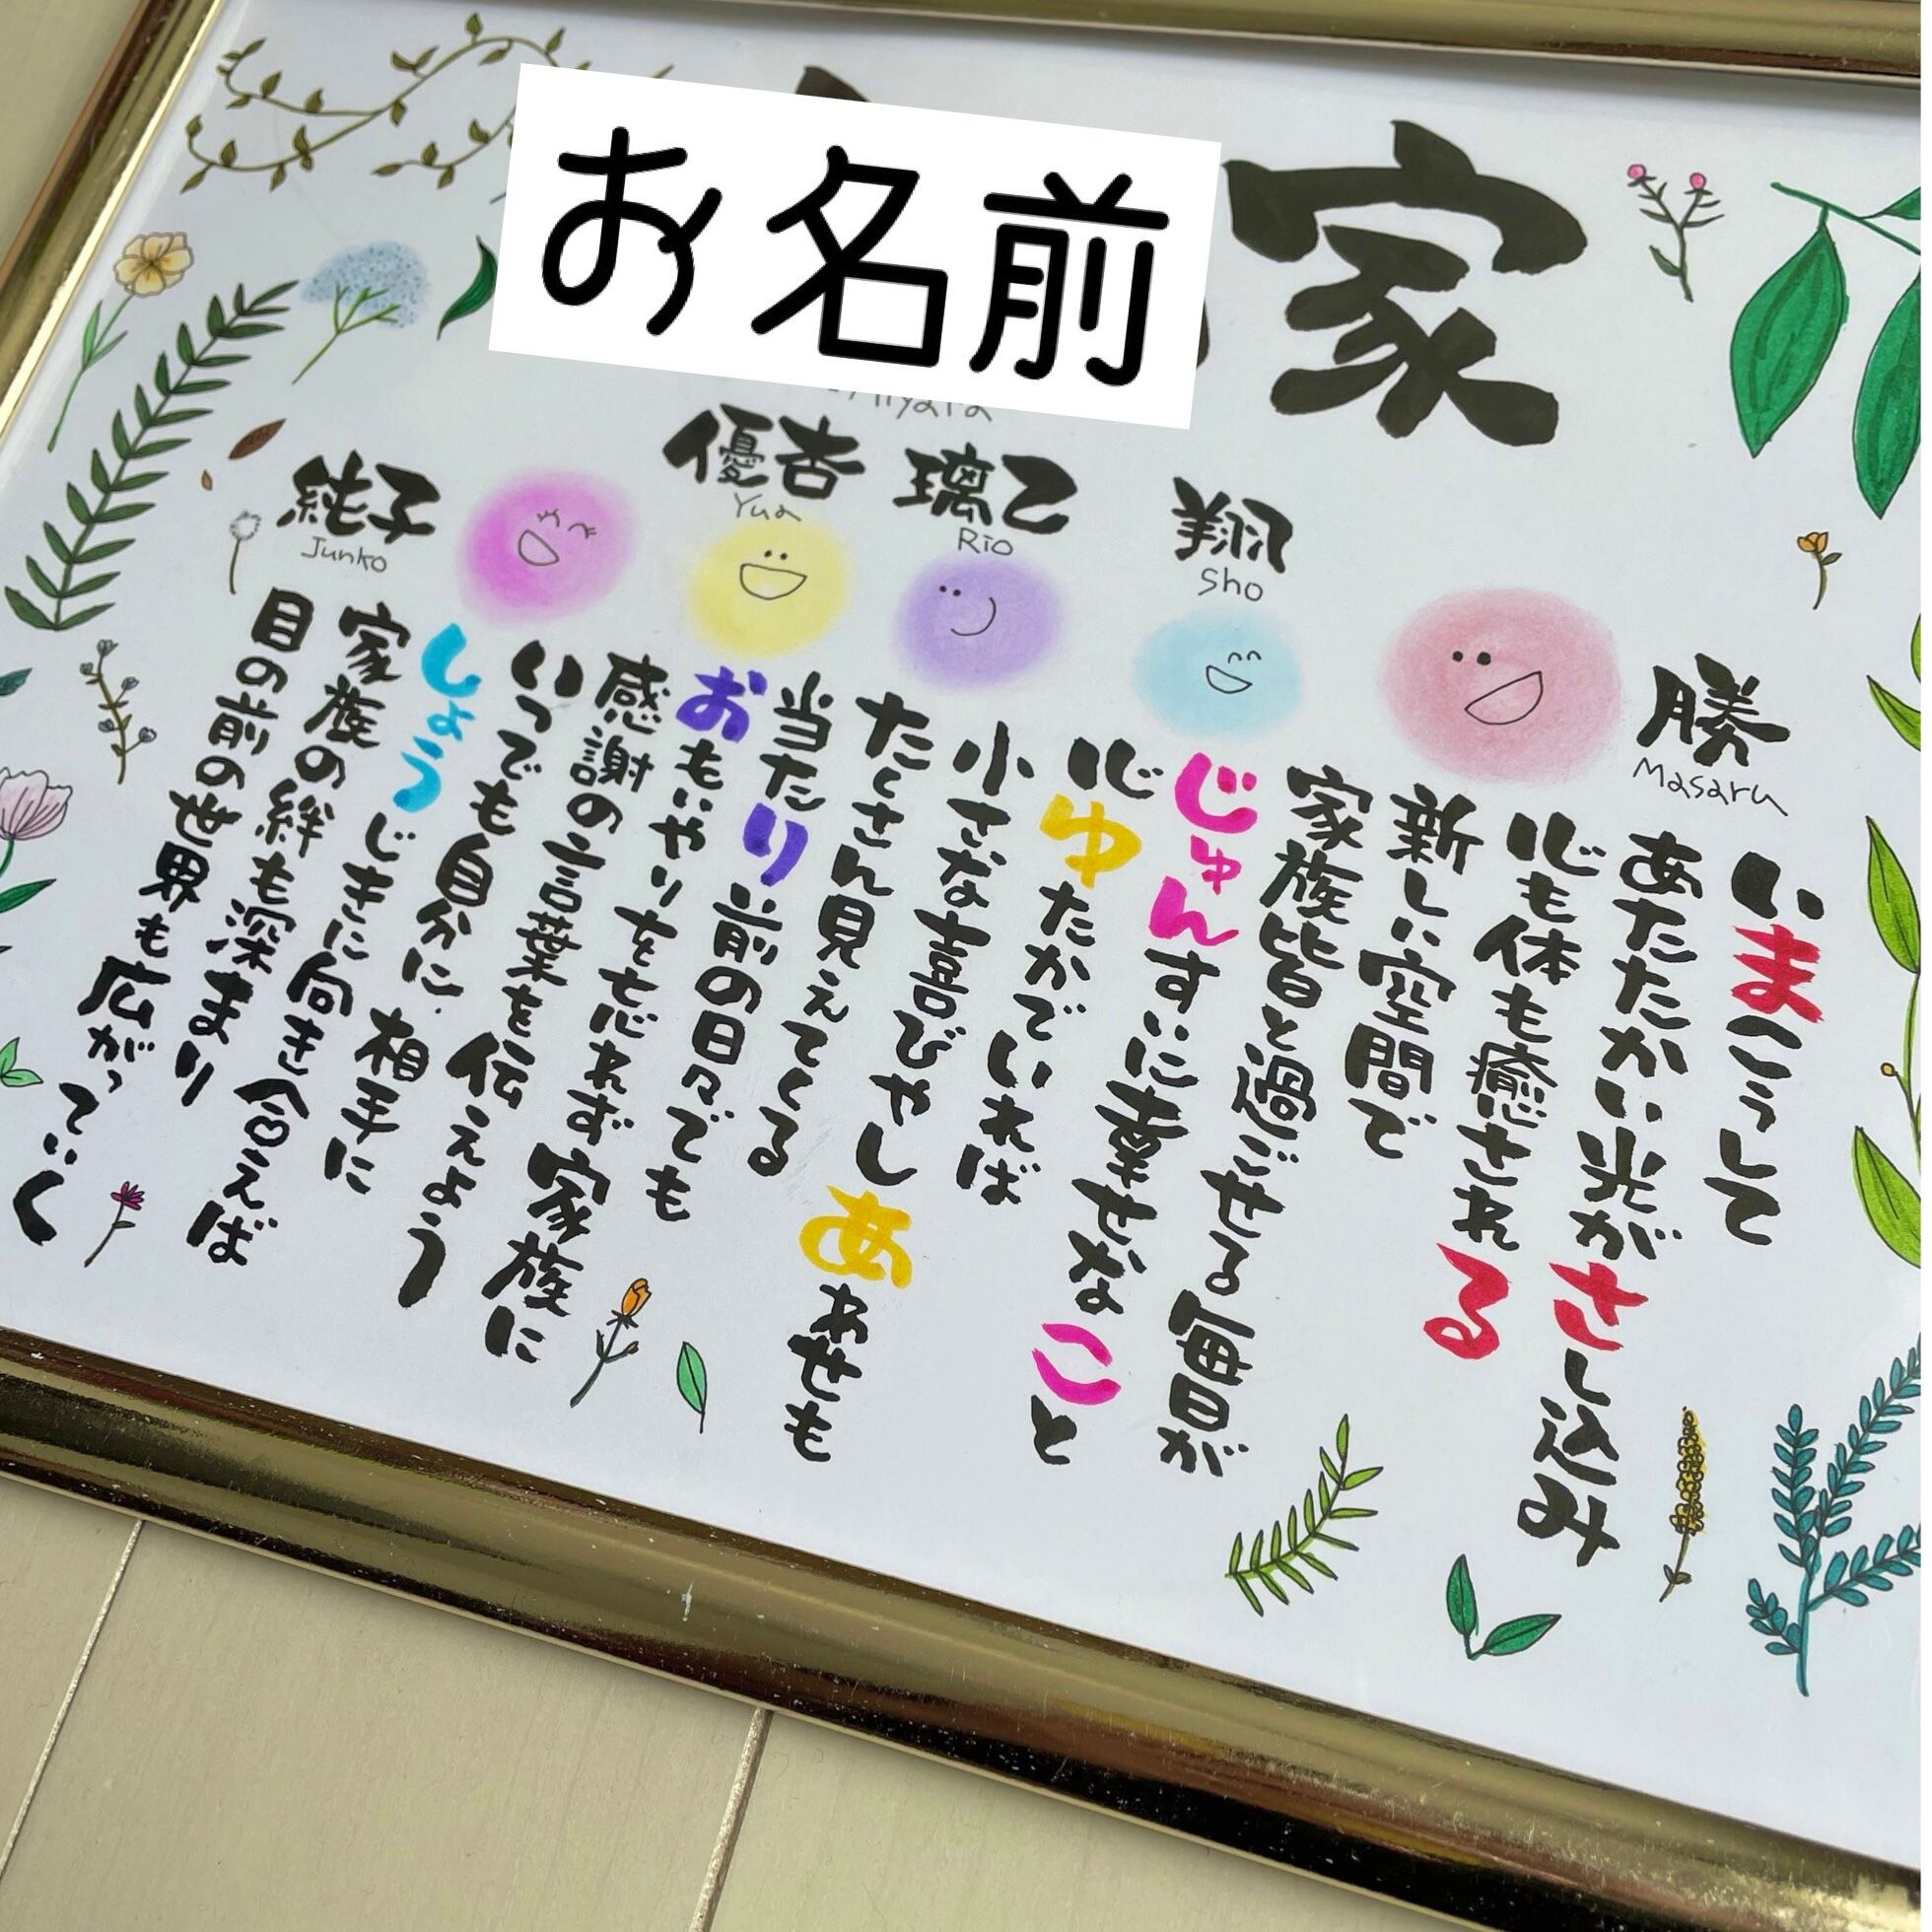 お名前
家
勝
Masaru
翔
Sho
璃乙
Rio
優杏
Yua
純子
Junko
いまこうして
あたたかい光がさし込み
心も体も癒される
新しい空間で
家族皆と過ごせる毎日が
じゅんすいに幸せなこと
心ゆたかでいれば
小さな喜びやしあわせも
たくさん見えてくる
当たり前の日々でも
おもいやりを忘れず家族に
感謝の言葉を伝えよう
いつでも自分に相手に
しょうじきに向き合えば
家族の絆も深まり
目の前の世界も広がっていく